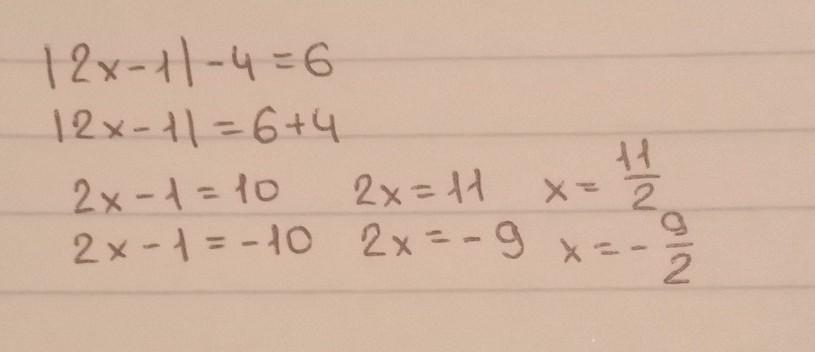 |2x-1|-4=6
|2x-1|=6+4
2x-1=10 2x=11 x=11/2
2x-1=-10 2x=-9 x=-9/2